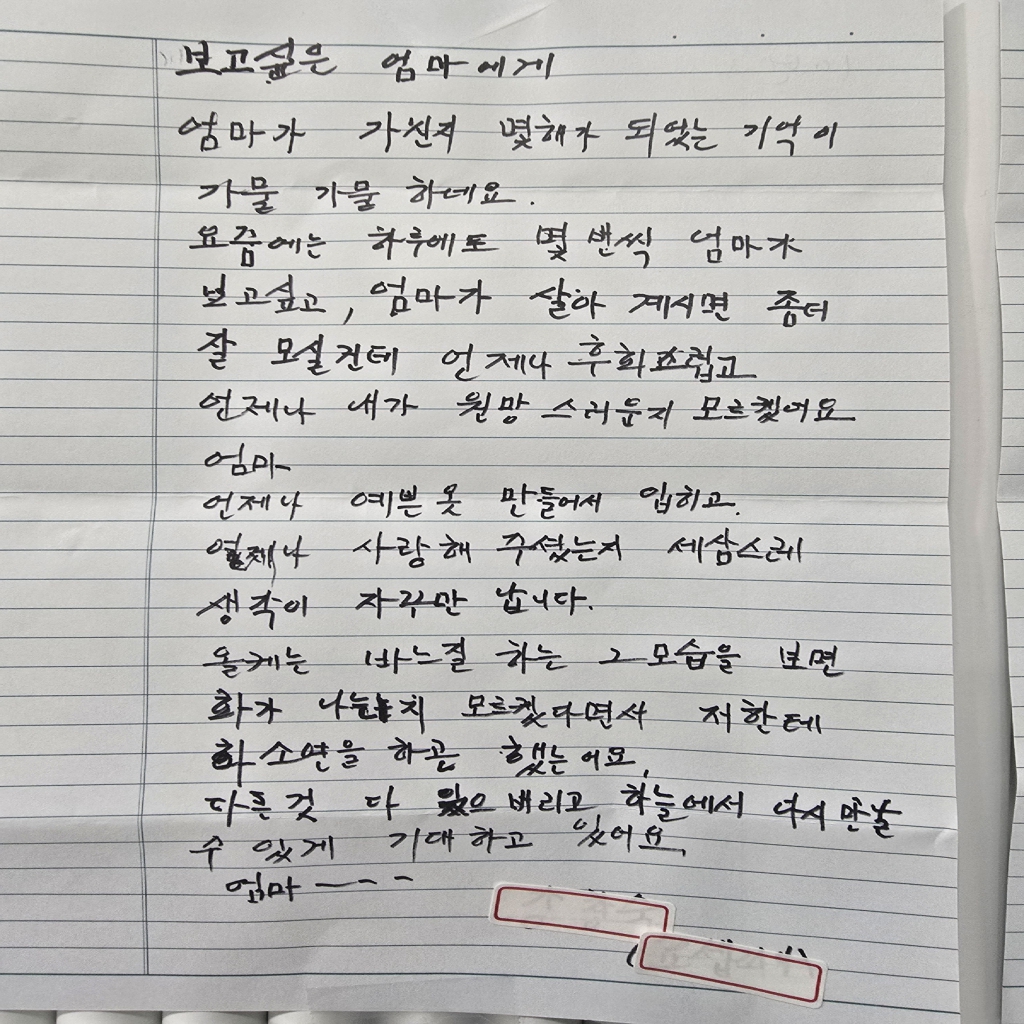 보고싶은 엄마에게
엄마가 가신지 몇해가 되었는 기억이
가물 가물 하네요.
요즘에는 하루에도 몇 번씩 엄마가
보고싶고, 엄마가 살아 계시면 좀더
잘 모실건테 언제나 후회스럽고
언제나 내가 원망 스러운지 모르겠어요
엄마
언제나 예쁜 옷 만들어서 입히고.
언제나 사랑해 주셨는지 세삼스레
생각이 자꾸만 납니다.
올케는 바느질 하는 그모습을 보면
화가 나는지 모르겠다면서 저한테
화소연을 하곤 했는어요.
다른것 다 잊으버리고 하늘에서 다시 만날
수 있게 기대하고 있어요.
엄마 ---